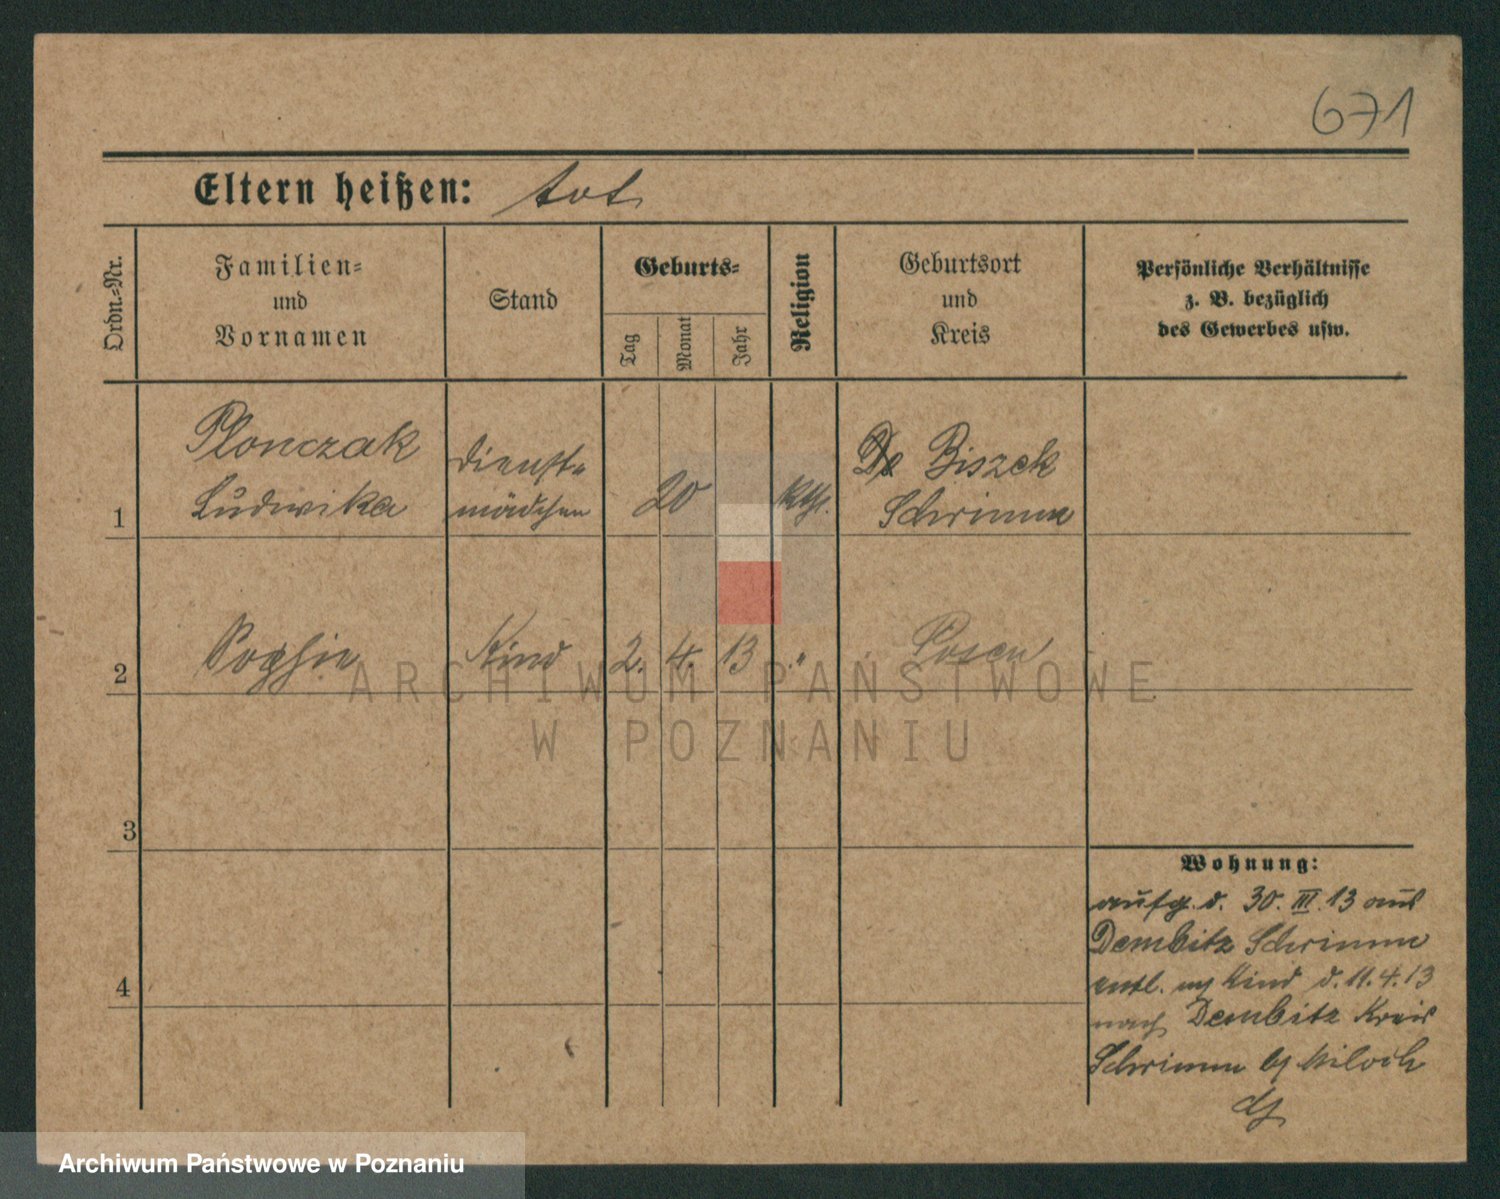 671
Eltern heißen: tot
Ordn.=Nr.
Familien=
und
Vornamen
Stand
Geburts=
Tag
Monat
Jahr
Religion
Geburtsort
und
Kreis
Persönliche Verhältnisse
z. B. bezüglich
des Gewerbes usw.
1
Plonczak
Ludwika
Dienst=
mädchen
20
kth.
Biszek
Schrimm
2
Sophie
Kind
2.
4.
13
"
Posen
3
4
Wohnung:
aufg. d. 30. III. 13 aus
Dembitz Schrimm
entl. Kind d. 11.4.13
nach Dembitz Kreis
Schrimm
ARCHIWUM PAŃSTWOWE
W POZNANIU
Archiwum Państwowe w Poznaniu